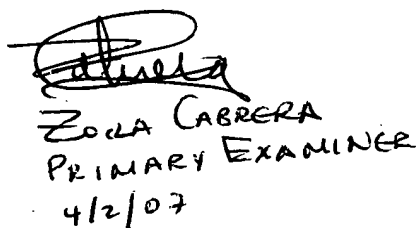 Zoila Cabrera
PRIMARY EXAMINER
4/2/07